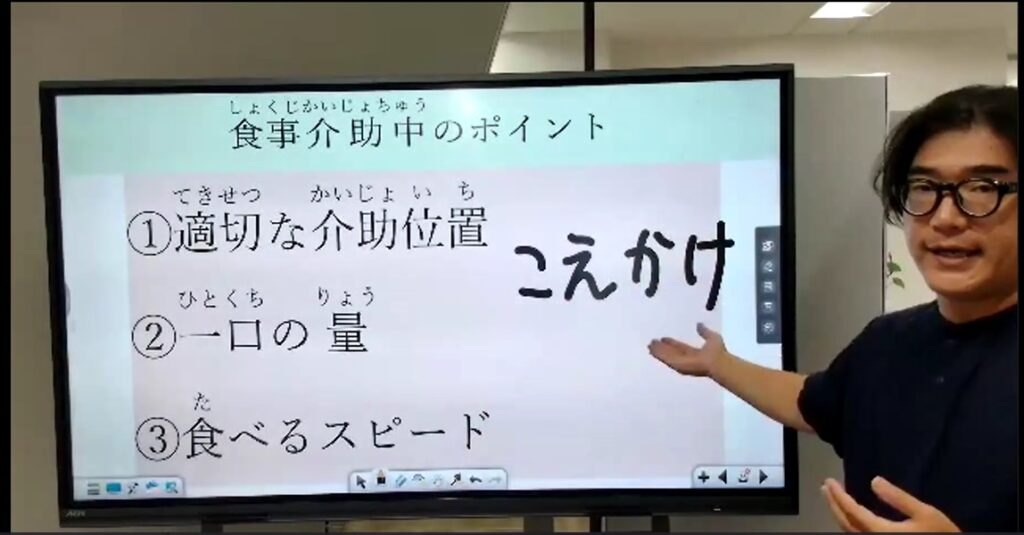 しょくじかいじょちゅう
食事介助中のポイント
てきせつ かいじょ いち
①適切な介助位置
こえかけ
ひとくち りょう
②一口の量
た
③食べるスピード